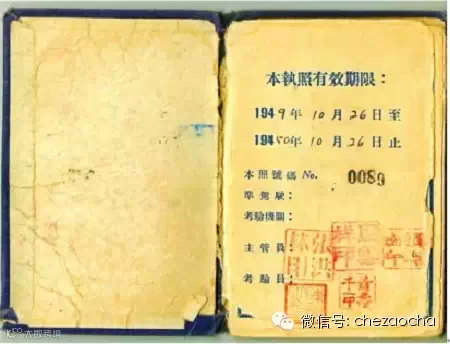 本執照有效期限：
1949年10月26日至
19450年10月26日止
本照號碼 No. 0089
準駕駛：
考驗機關：
主管員：
考驗員：
微信号: chezaocha